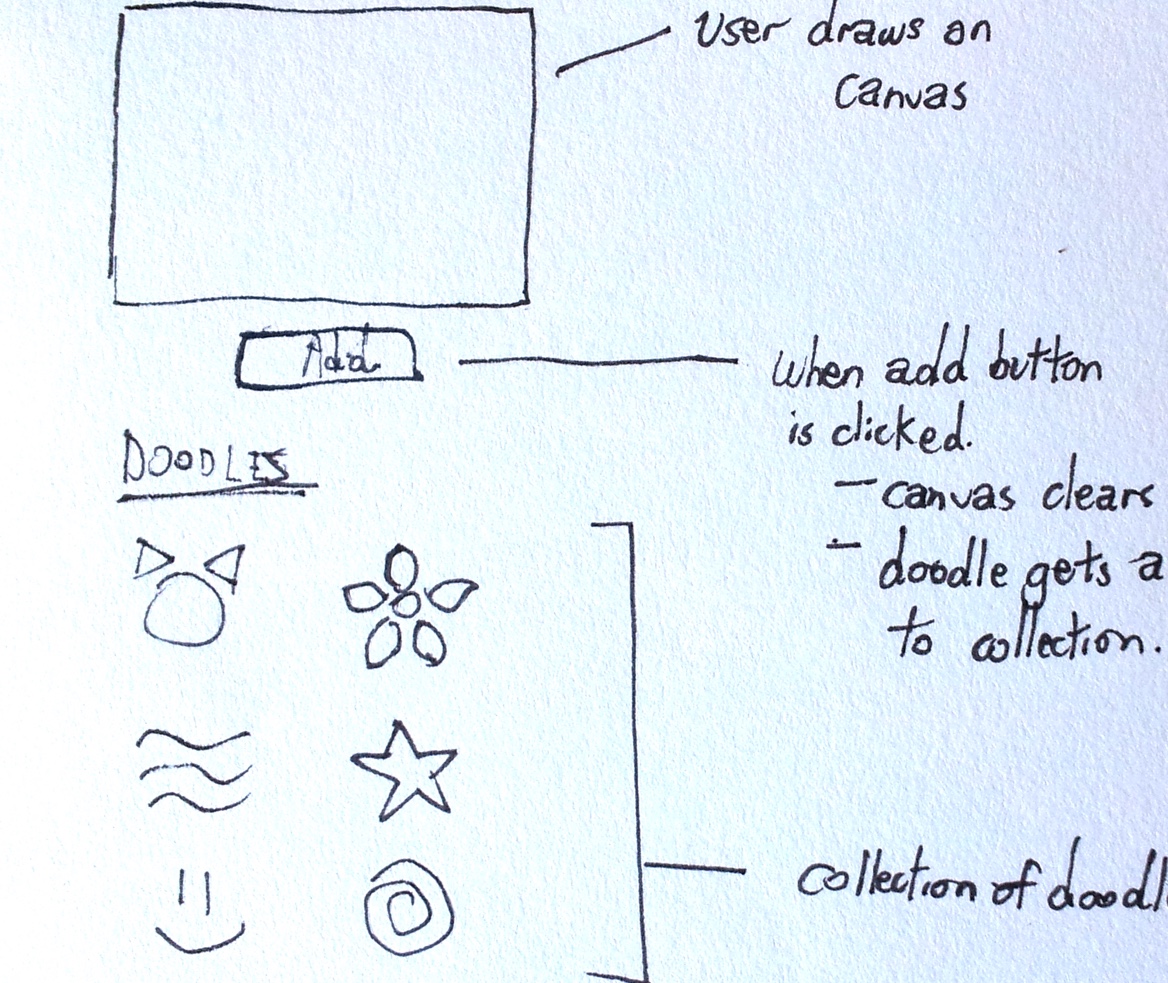 User draws on
canvas
Add
when add button
is clicked.
— canvas clears
— doodle gets a
to collection.
DOODLES
collection of doodl